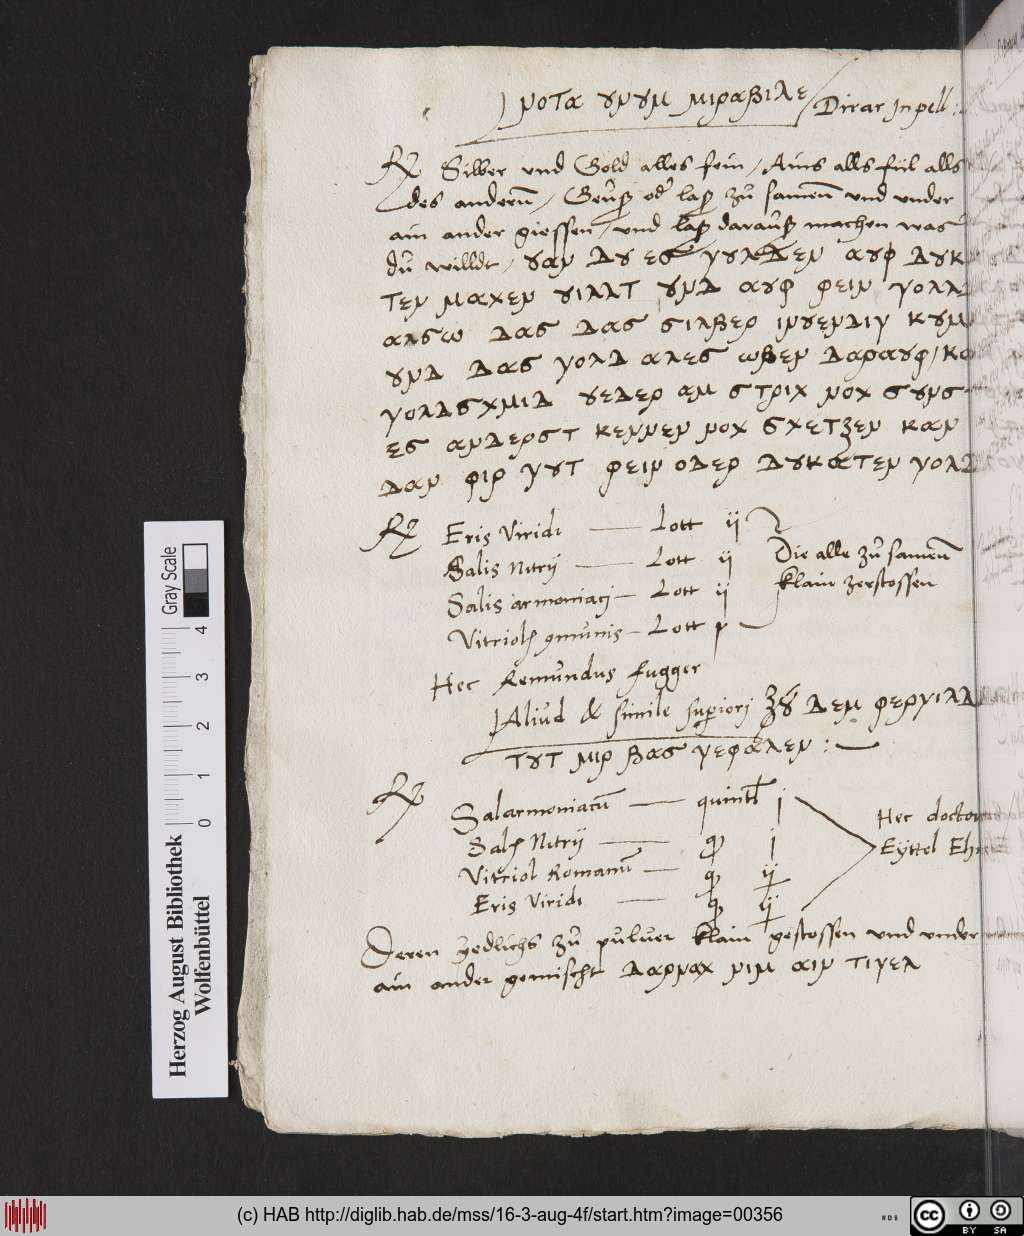 νοτα υνυμ μιραβιλε / Dirar Inpell:
℞ Silber vnd Gold alles fein / Ains alls fiil alls
des andern̄, Geüß od' laß zü samen̄ vnd vnder
ain ander giessen, vnd laß darauß machen was
dü willdt, υαν Δυ ες γυλΔεν αυφ Δυκ
τεν μαχεν υιλλτ υνΔ αυφ φειν γολλ
αλσω Δας Δας σιλβερ ινυενΔιγ κυμ
υνΔ Δας γολΔ αλες ωβεν Δαραυφ / κα
γολΔσχμιΔ υεΔερ αμ στριχ νοχ συνσ
ες ανΔερστ κεννεν νοχ σχετζεν καν
Δαν φιρ γυτ φειν οΔερ Δυκατεν γολΔ
℞ Eris Viridi — Lott ij
Salis Nitrij — Lott ij
Salis armoniaci — Lott ij
Vitriolj gmunis — Lott
Die alle zü samen̄
klain zerstossen
Hec Remundus fugger
Aliud & simile superiorj ζυ Δεμ φεργιλΔ
τυτ μιρ βας γεφαλεν :—
℞ Salarmoniacū — quintl j
Salis Nitrij — q j
Vitriol Romanū — q ij
Eris Viridi — q ij
Hec doctor
Eyttel
Deren yedlichs zü puluer klain gestossen vnd vnder
ain ander gemischt Δαρναχ νιμ αιν τιγελ
Gray Scale
0 1 2 3 4
Herzog August Bibliothek
Wolfenbüttel
(c) HAB http://diglib.hab.de/mss/16-3-aug-4f/start.htm?image=00356
WDB
cc BY SA